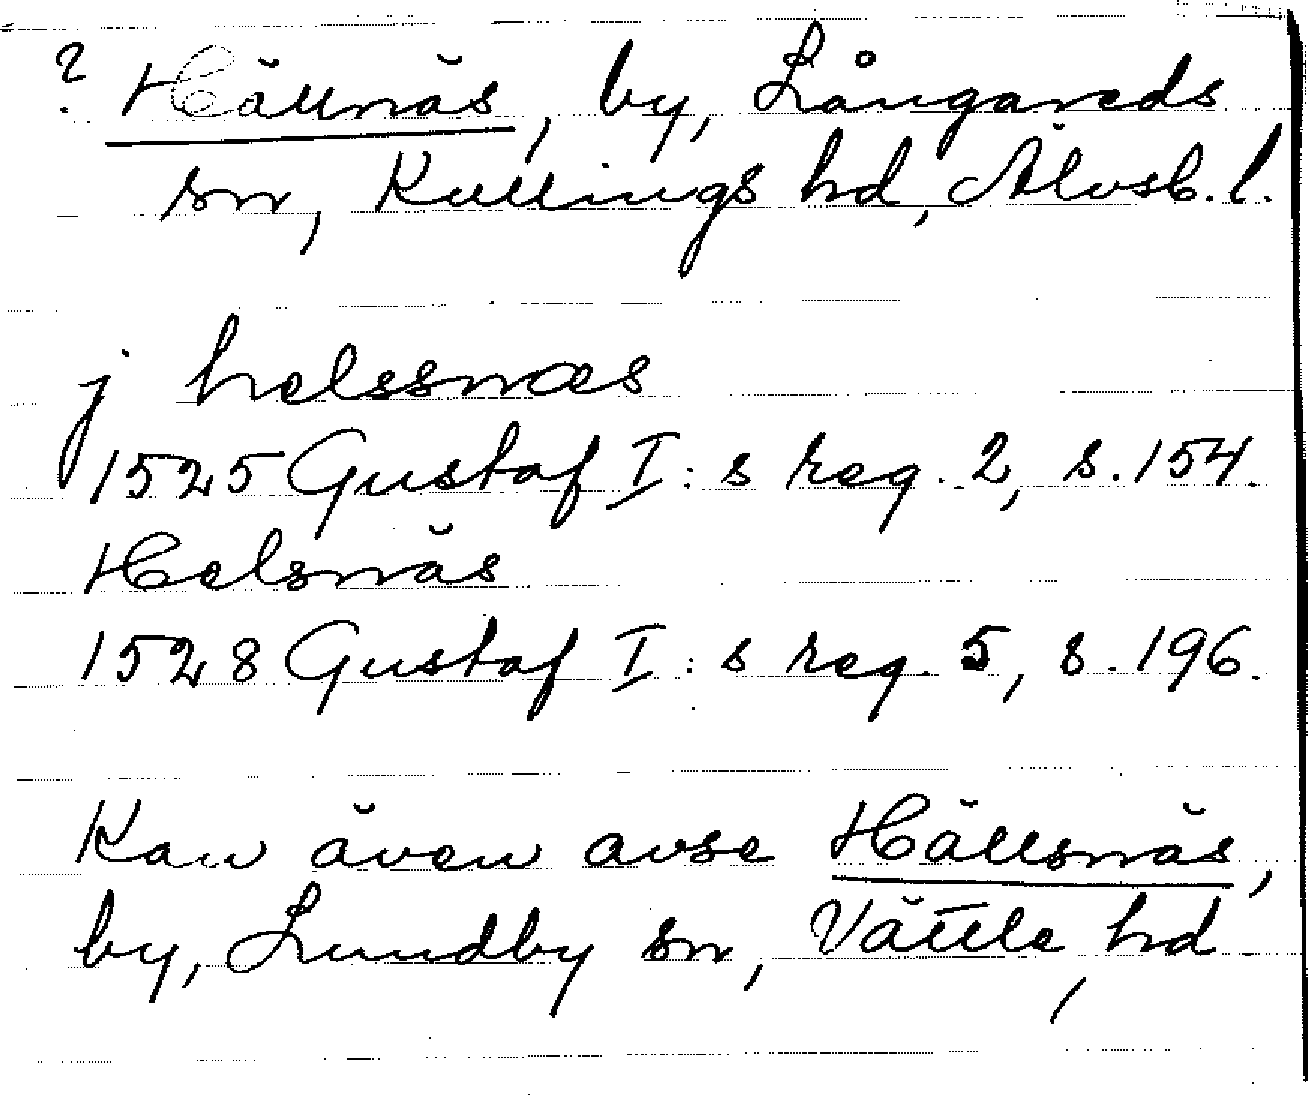 ? Hällnäs, by, Långareds
sn, Kullings hd, Älvsb. l.
j helssnæs
1525 Gustaf I:s reg. 2, s. 154.
Helsnäs
1528 Gustaf I:s reg. 5, s. 196.
Kan även avse Hällsnäs,
by, Lundby sn, Vättle hd,